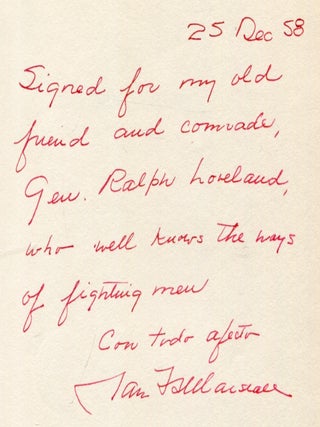 25 Dec 58
Signed for my old
friend and comrade,
Gen. Ralph Loveland,
who well knows the ways
of fighting men
Con todo afecto